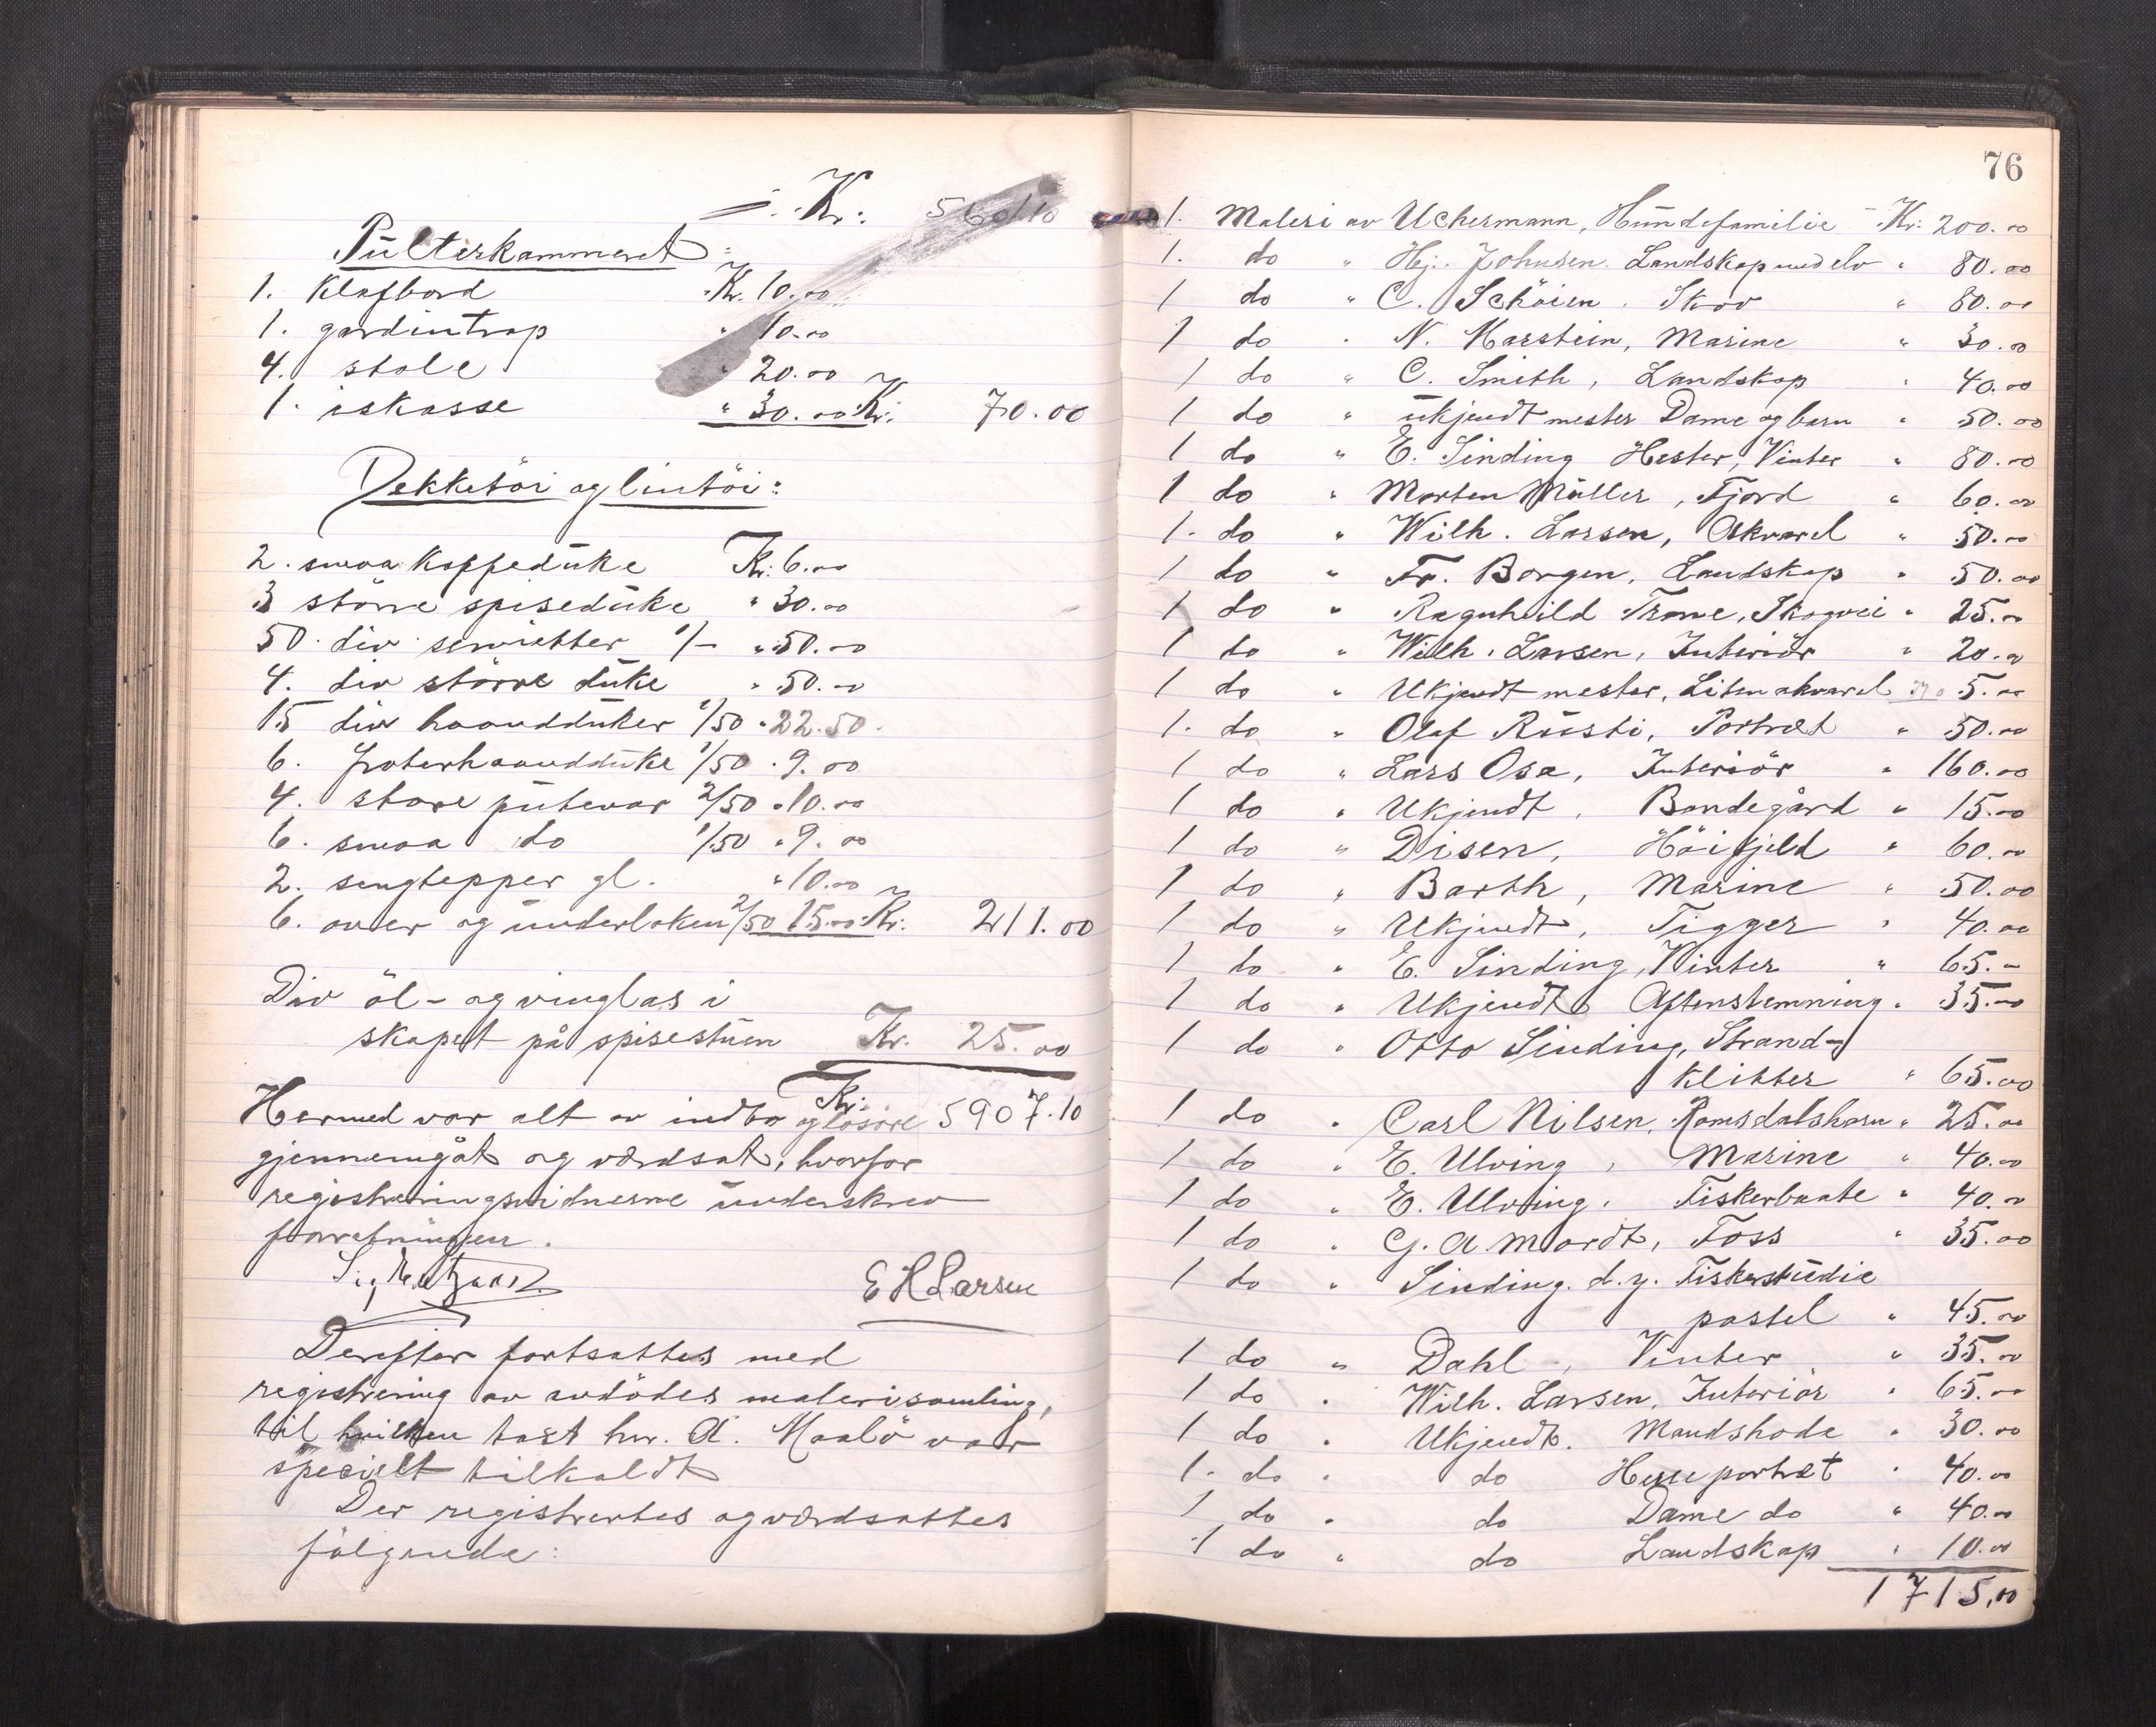 ÷ Kr: 5601.10
Pulterkammeret:
1. Klafbord Kr. 10.00
1. gardintrap " 10.00
4. stole " 20.00
1. iskasse " 30.00 Kr. 70.00
Dekketöi og lintöi:
2. smaa Koppeduke Kr. 6.00
3 större spiseduke " 30.00
50. div serviétter 1/- " 50.00
4. div större duke " 50.00
15 div haandduker 1/50 " 22.50
6. froterhaandduke 1/50 " 9.00
4. store putevar 2/50 " 10.00
6. smaa do 1/50 " 9.00
2. sengtepper gl. " 10.00
6. over og underlaken 2/50 15.00 Kr. 211.00
Div öl- og vinglas i
skapet på spisestuen Kr. 25.00
Hermed var alt av indbo og lösöre Kr: 5907.10
gjennemgåt og værdsat, hvorfor
registreringsvidnerne underskrev
forretningen.
E H Larsen
Derefter fortsattes med
registrering av avdödes malerisamling,
til hvilken takst hr. A. Maalö var
specielt tilkaldt
Der registrertes og værdsattes
fölgende:
76
1. Maleri av Uckermann, Hundefamilie Kr: 200.00
1. do " Hj. Johnsen. Landskap med elv " 80.00
1 do " C. Schöien. Skov " 80.00
1 do " N. Marstein, Marine " 30.00
1 do " C. Smith, Landskap " 40.00
1 do " ukjendt mester Dame og barn " 50.00
1 do " E. Sinding Hester, Vinter " 80.00
1 do " Morten Müller, Fjord " 60.00
1. do " Wilh. Larsen, Akvarel " 50.00
1 do " Fr. Borgen, Landskap " 50.00
1 do " Ragnhild Trane, Skogvei " 25.00
1 do " Wilh. Larsen, Interiör " 20.00
1 do " Ukjendt mester, Liten akvarel 5.00
1. do " Olaf Rusti, Portræt " 50.00
1 do " Lars Osa, Interiör " 160.00
1 do " Ukjendt, Bondegård " 15.00
1 do " Disen, Höifjeld " 60.00
1 do " Barth, Marine " 50.00
1 do " Ukjendt, Tigger " 40.00
1 do " E. Sinding, Vinter " 65.-
1 do " Ukjendt, Aftenstemning " 35.00
1 do " Otto Sinding, Strand-
klitter " 65.00
1 do " Carl Nilsen, Romsdalshorn " 25.00
1 do " E. Ulving, Marine " 40.00
1 do " E. Ulving, Fiskerbaate " 40.00
1 do " G. A. Mordt, Foss " 35.00
1 do " Sinding. d. y. Fiskerstudie
pastel " 45.00
1 do " Dahl, Vinter " 35.00
1 do " Wilh. Larsen, Interiör " 65.00
1 do " Ukjendt. Mandshode " 30.00
1. do " do Herreportræt " 40.00
1 do " do Dame do " 40.00
1 do " do Landskap " 10.00
1715,00